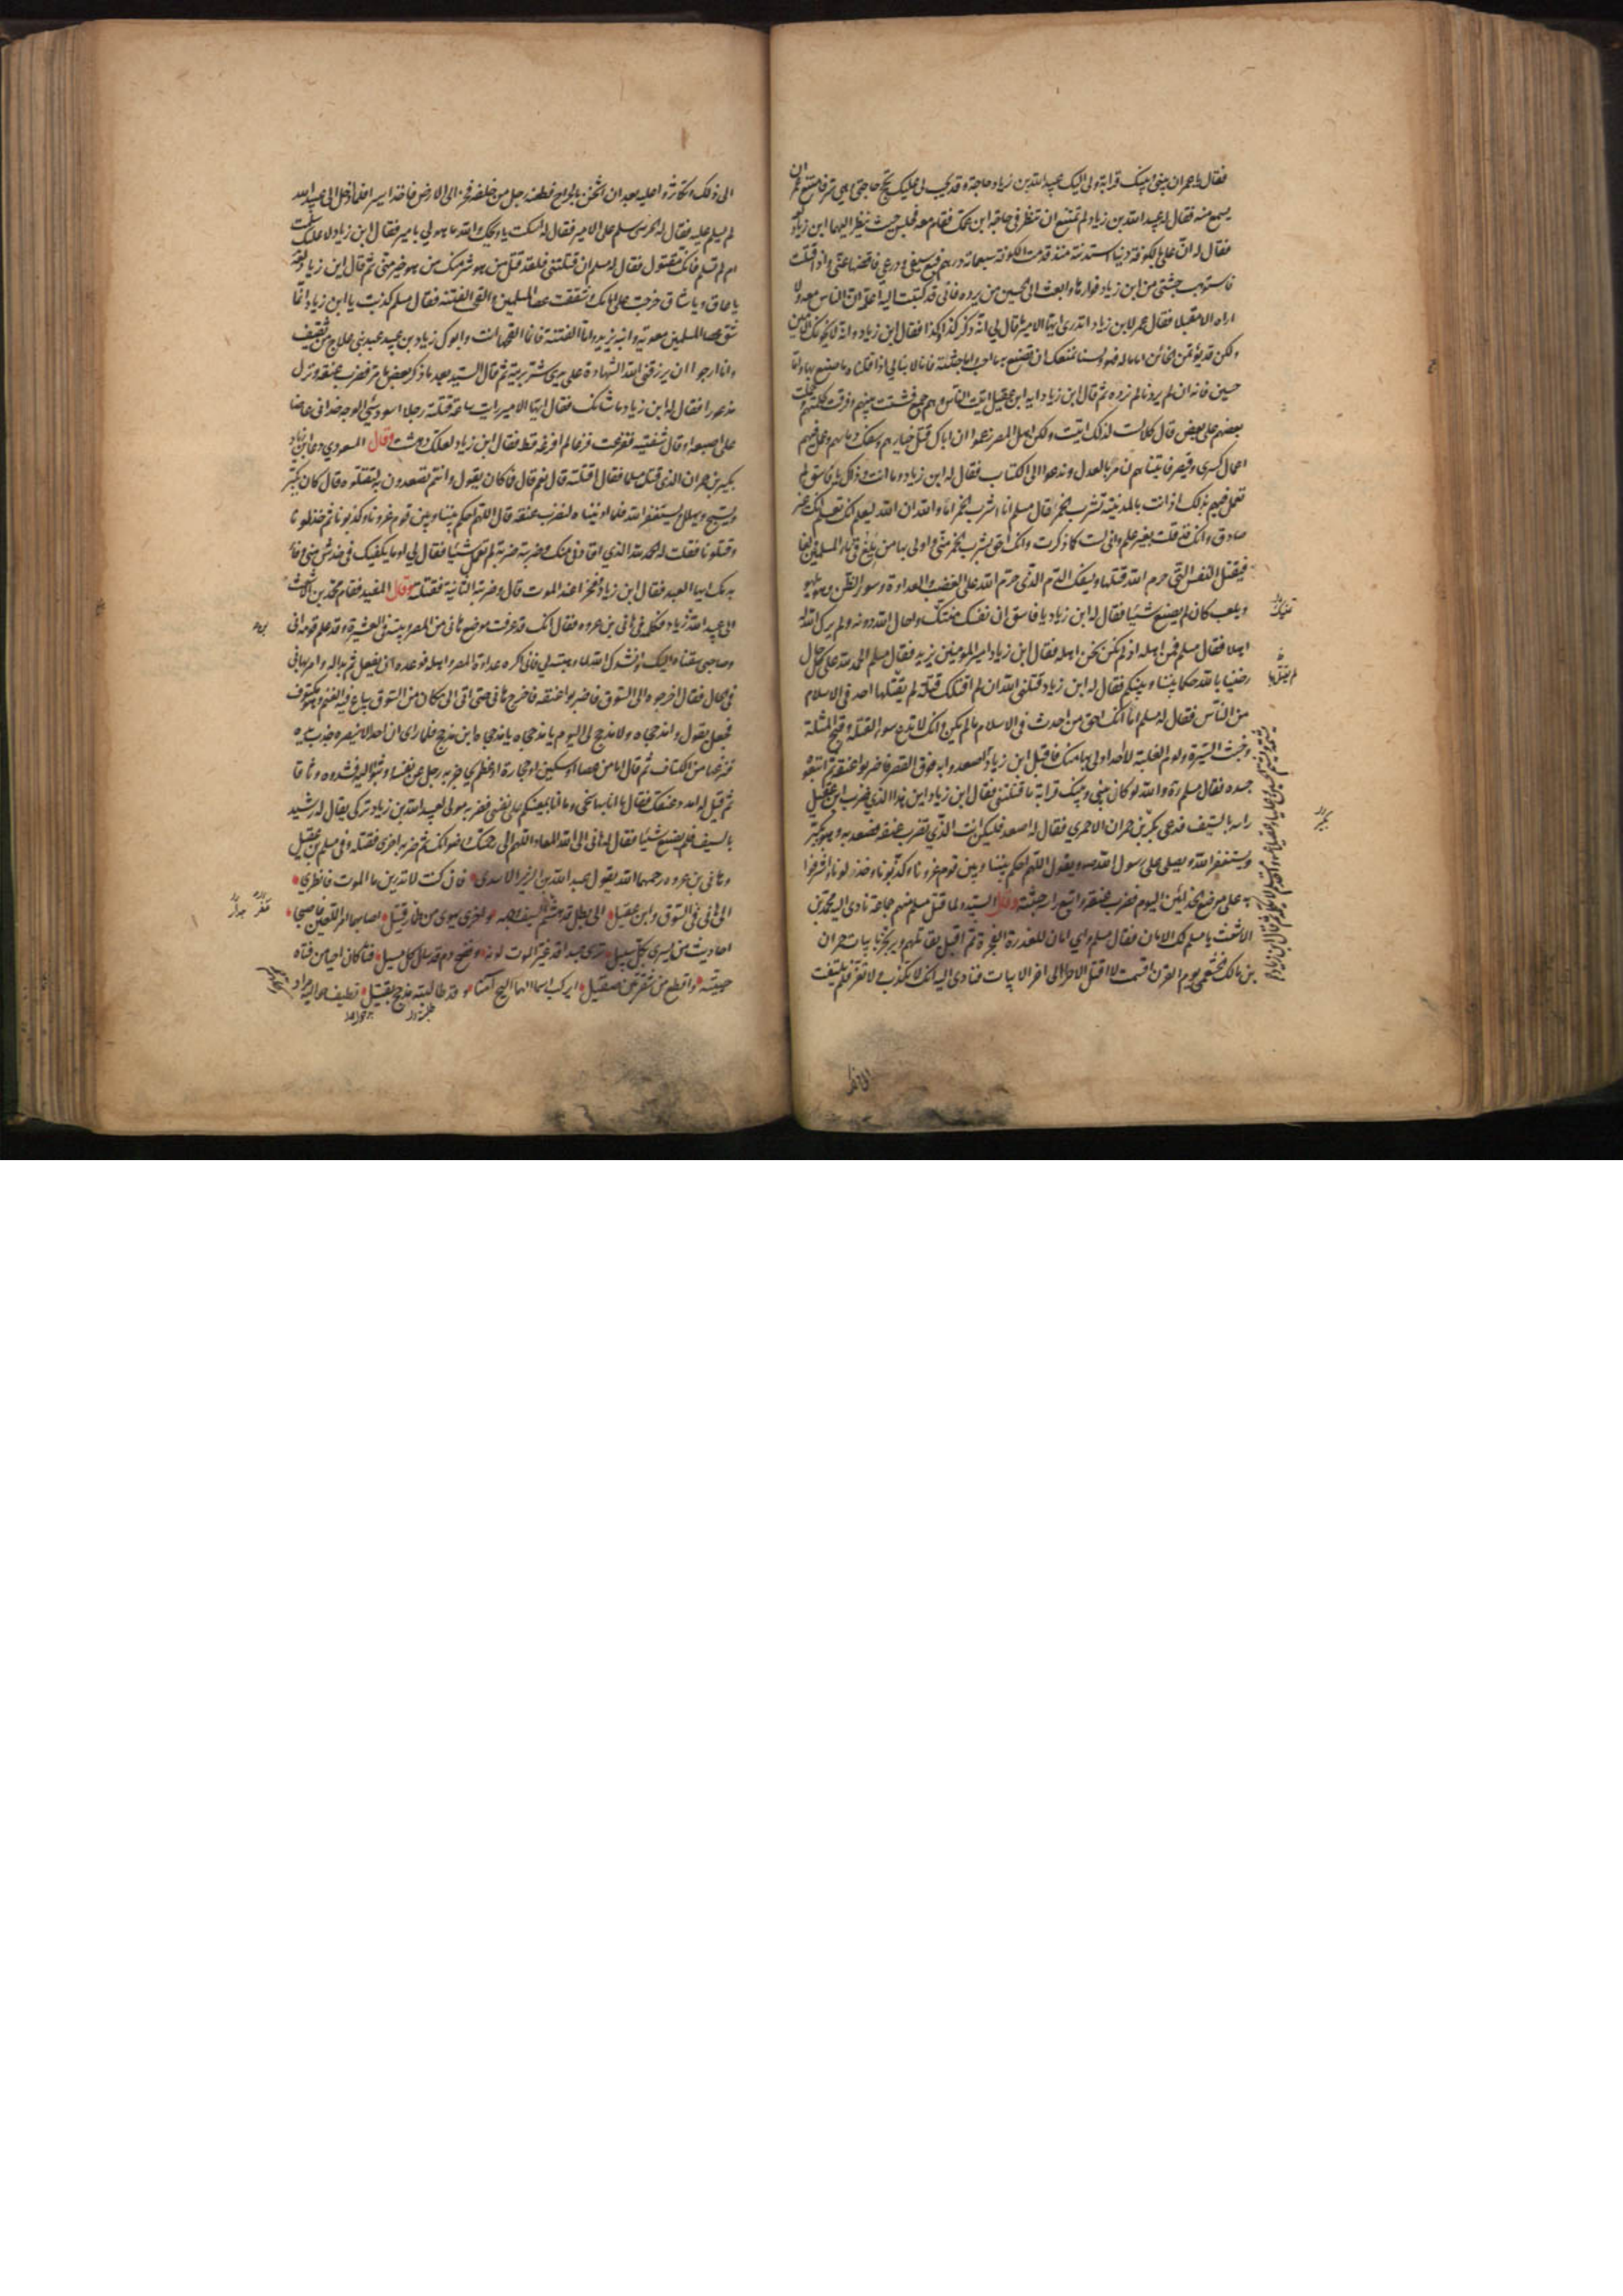 فقال يا عمر ان بيني وبينك قرابة ولي اليك حاجة وقد يجب لي عليك نجح حاجتي وهي سر فامتنع عمر ان
يسمع منه فقال له عبيد الله بن زياد لم تمتنع ان تنظر في حاجة ابن عمك فقام معه فجلس حيث ينظر اليهما ابن زياد
فقال له ان علي بالكوفة دينا استدنته منذ قدمت الكوفة سبعمائة درهم فبع سيفي ودرعي فاقضها عني واذا قتلت
فاستوهب جثتي من ابن زياد فوارها وابعث الى الحسين من يرده فاني قد كتبت اليه اعلمه ان الناس معه ولا
اراه الا مقبلا فقال عمر لابن زياد اتدري ايها الامير ما قال لي انه ذكر كذا وكذا فقال ابن زياد انه لا يخونك الامين
ولكن قد يؤتمن الخائن اما ماله فهو له ولسنا نمنعك ان تصنع به ما احب واما جثته فانا لا نبالي اذا قتلناه ما صنع بها واما
حسين فانه ان لم يردنا لم نرده ثم قال ابن زياد ايه ابن عقيل اتيت الناس وهم جمع فشتت بينهم وفرقت كلمتهم وحملت
بعضهم على بعض قال كلا لست لذلك اتيت ولكن اهل المصر زعموا ان اباك قتل خيارهم وسفك دماءهم وعمل فيهم
اعمال كسرى وقيصر فاتيناهم لنامر بالعدل وندعو الى الكتاب فقال له ابن زياد وما انت وذاك يا فاسق لم لم
تعمل فيهم بذلك اذ انت بالمدينة تشرب الخمر قال مسلم انا اشرب الخمر اما والله ان الله ليعلم انك تعلم انك غير
صادق وانك قد قلت بغير علم واني لست كما ذكرت وانك احق بشرب الخمر مني واولى بها من يلغ في دماء المسلمين ولغا
فيقتل النفس التي حرم الله قتلها ويسفك الدم الذي حرم الله على الغضب والعداوة وسوء الظن وهو يلهو
ويلعب كان لم يصنع شيئا فقال له ابن زياد يا فاسق ان نفسك منتك ما حال الله دونه ولم يرك الله له
اهلا فقال مسلم فمن اهله اذا لم نكن نحن اهله فقال ابن زياد امير المؤمنين يزيد فقال مسلم الحمد لله على كل حال
رضينا بالله حكما بيننا وبينكم فقال له ابن زياد قتلني الله ان لم اقتلك قتلة لم يقتلها احد في الاسلام
من الناس فقال له مسلم اما انك احق من احدث في الاسلام ما لم يكن وانك لا تدع سوء القتلة وقبح المثلة
وخبث السيرة ولؤم الغلبة لاحد اولى بها منك فاقبل ابن زياد اصعدوا به فوق القصر فاضربوا عنقه ثم اتبعوه
جسده فقال مسلم ره والله لو كان بيني وبينك قرابة ما قتلتني فقال ابن زياد اين هذا الذي ضرب ابن عقيل
راسه بالسيف فدعي بكر بن حمران الاحمري فقال له اصعد فليكن انت الذي تضرب عنقه فصعد به وهو يكبر
ويستغفر الله ويصلي على رسول الله ص ويقول اللهم احكم بيننا وبين قوم غرونا وكذبونا وخذلونا واشرفوا
به على موضع الحذائين اليوم فضرب عنقه واتبع راسه جثته وقال السيد ولما قتل مسلم منهم جماعة نادى اليه محمد بن
الاشعث يا مسلم لك الامان فقال مسلم واي امان للغدرة الفجرة ثم اقبل يقاتلهم ويرتجز بابيات حمران
بن مالك الخثعمي يوم القرن اقسمت لا اقتل الا حرا الى اخر الابيات فنادى اليه انك لا تكذب ولا تغر فلم يلتفت
الى ذلك
الى ذلك وتكاثروا عليه بعد ان اثخن بالجراح فطعنه رجل من خلفه فخر الى الارض فاخذ اسيرا فلما ادخل الى عبيد الله
لم يسلم عليه فقال له الحرسي سلم على الامير فقال له اسكت يا ويحك والله ما هو لي بامير فقال ابن زياد لا عليك سلمت
ام لم تسلم فانك مقتول فقال له مسلم ان قتلتني فلقد قتل من هو شر منك من هو خير مني ثم قال ابن زياد
يا عاق ويا شاق خرجت على امامك وشققت عصا المسلمين والقحت الفتنة فقال مسلم كذبت يا ابن زياد انما
شق عصا المسلمين معوية وابنه يزيد واما الفتنة فانما القحها انت وابوك زياد بن عبيد عبد بني علاج من ثقيف
وانا ارجو ان يرزقني الله الشهادة على يدي شر بريته ثم قال السيد بعد ما ذكر بعض ما مر فضرب عنقه ونزل
مذعورا فقال له ابن زياد ما شانك فقال ايها الامير رايت ساعة قتلته رجلا اسود سيئ الوجه حذائي عاضا
على اصبعه او قال شفتيه ففزعت فزعا لم افزعه قط فقال ابن زياد لعلك دهشت وقال المسعودي دعا ابن زياد
بكير بن حمران الذي قتل مسلما فقال اقتلته قال نعم قال فما كان يقول وانتم تصعدون به لتقتلوه قال كان يكبر
ويسبح ويهلل ويستغفر الله فلما ادنيناه لنضرب عنقه قال اللهم احكم بيننا وبين قوم غرونا وكذبونا ثم خذلونا
وقتلونا فقلت له الحمد لله الذي اقادني منك وضربته ضربة لم تعمل شيئا فقال لي اوما يكفيك في خدش مني وفاء
بدمك ايها العبد فقال ابن زياد وفخرا عند الموت قال وضربته الثانية فقتلته وقال المفيد فقام محمد بن الاشعث
الى عبيد الله زياد فكلمه في هاني بن عروه فقال انك قد عرفت موضع هاني من المصر وبيته في العشيرة وقد علم قومه اني
وصاحبي سقناه اليك وانشدك الله لما وهبته لي فاني اكره عداوة المصر واهله فوعده ان يفعل ثم بدا له وامر بهاني
في الحال فقال اخرجوه الى السوق فاضربوا عنقه فاخرج هاني حتى اتى الى مكان من السوق يباع فيه الغنم وهو مكتوف
فجعل يقول وا مذحجاه ولا مذحج لي اليوم يا مذحجاه يا مذحجاه واين مذحج فلما راى ان احدا لا ينصره جذب يده
فنزعها من الكتاف ثم قال اما من عصا او سكين او حجارة او عظم يحاجز به رجل عن نفسه ووثبوا اليه فشدوه وثاقا
ثم قيل له امدد عنقك فقال ما انا بها بسخي وما انا بمعينكم على نفسي فضربه مولى لعبيد الله بن زياد تركي يقال له رشيد
بالسيف فلم يصنع شيئا فقال له هاني الى الله المعاد اللهم الى رحمتك ورضوانك ثم ضربه اخرى فقتله وفي مسلم بن عقيل
وهاني بن عروه رحمهما الله يقول عبد الله بن الزبير الاسدي فان كنت لا تدرين ما الموت فانظري
الى هاني في السوق وابن عقيل الى بطل قد هشم السيف وجهه واخرى يهوي من طمار قتيل اصابهما امر اللعين فاصبحا
احاديث من يسري بكل سبيل ترى جسدا قد غير الموت لونه ونضح دم قد سال كل مسيل فتى كان احيا من فتاة
حيية واقطع من ذي شفرتين صقيل ايركب اسماء الهماليج آمنا وقد طالبته مذحج بقتيل تطيف حواليه مراد